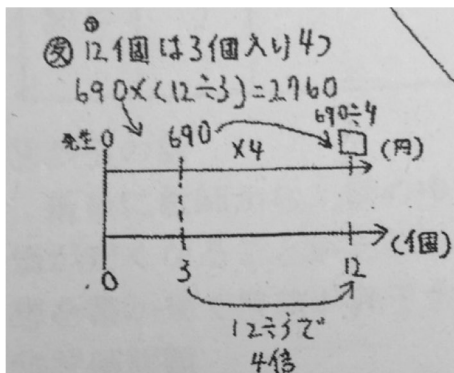 ① 
友 12個は3個入り4つ
690×(12÷3)=2760
690÷4
発生 0 690 ×4 □ (円)
0 3 12 (個)
12÷3で
4倍